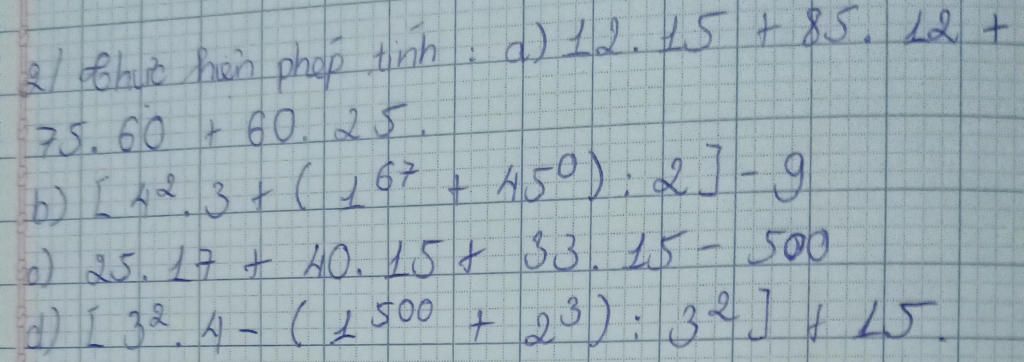 2/ Thực hiện phép tính : a) 12.15 + 85.12 +
75.60 + 60.25.
b) [4².3 + (1⁶⁷ + 45⁰) : 2] - 9
c) 25.17 + 40.15 + 33.15 - 500
d) [3².4 - (1⁵⁰⁰ + 2³) : 3²] + 15.